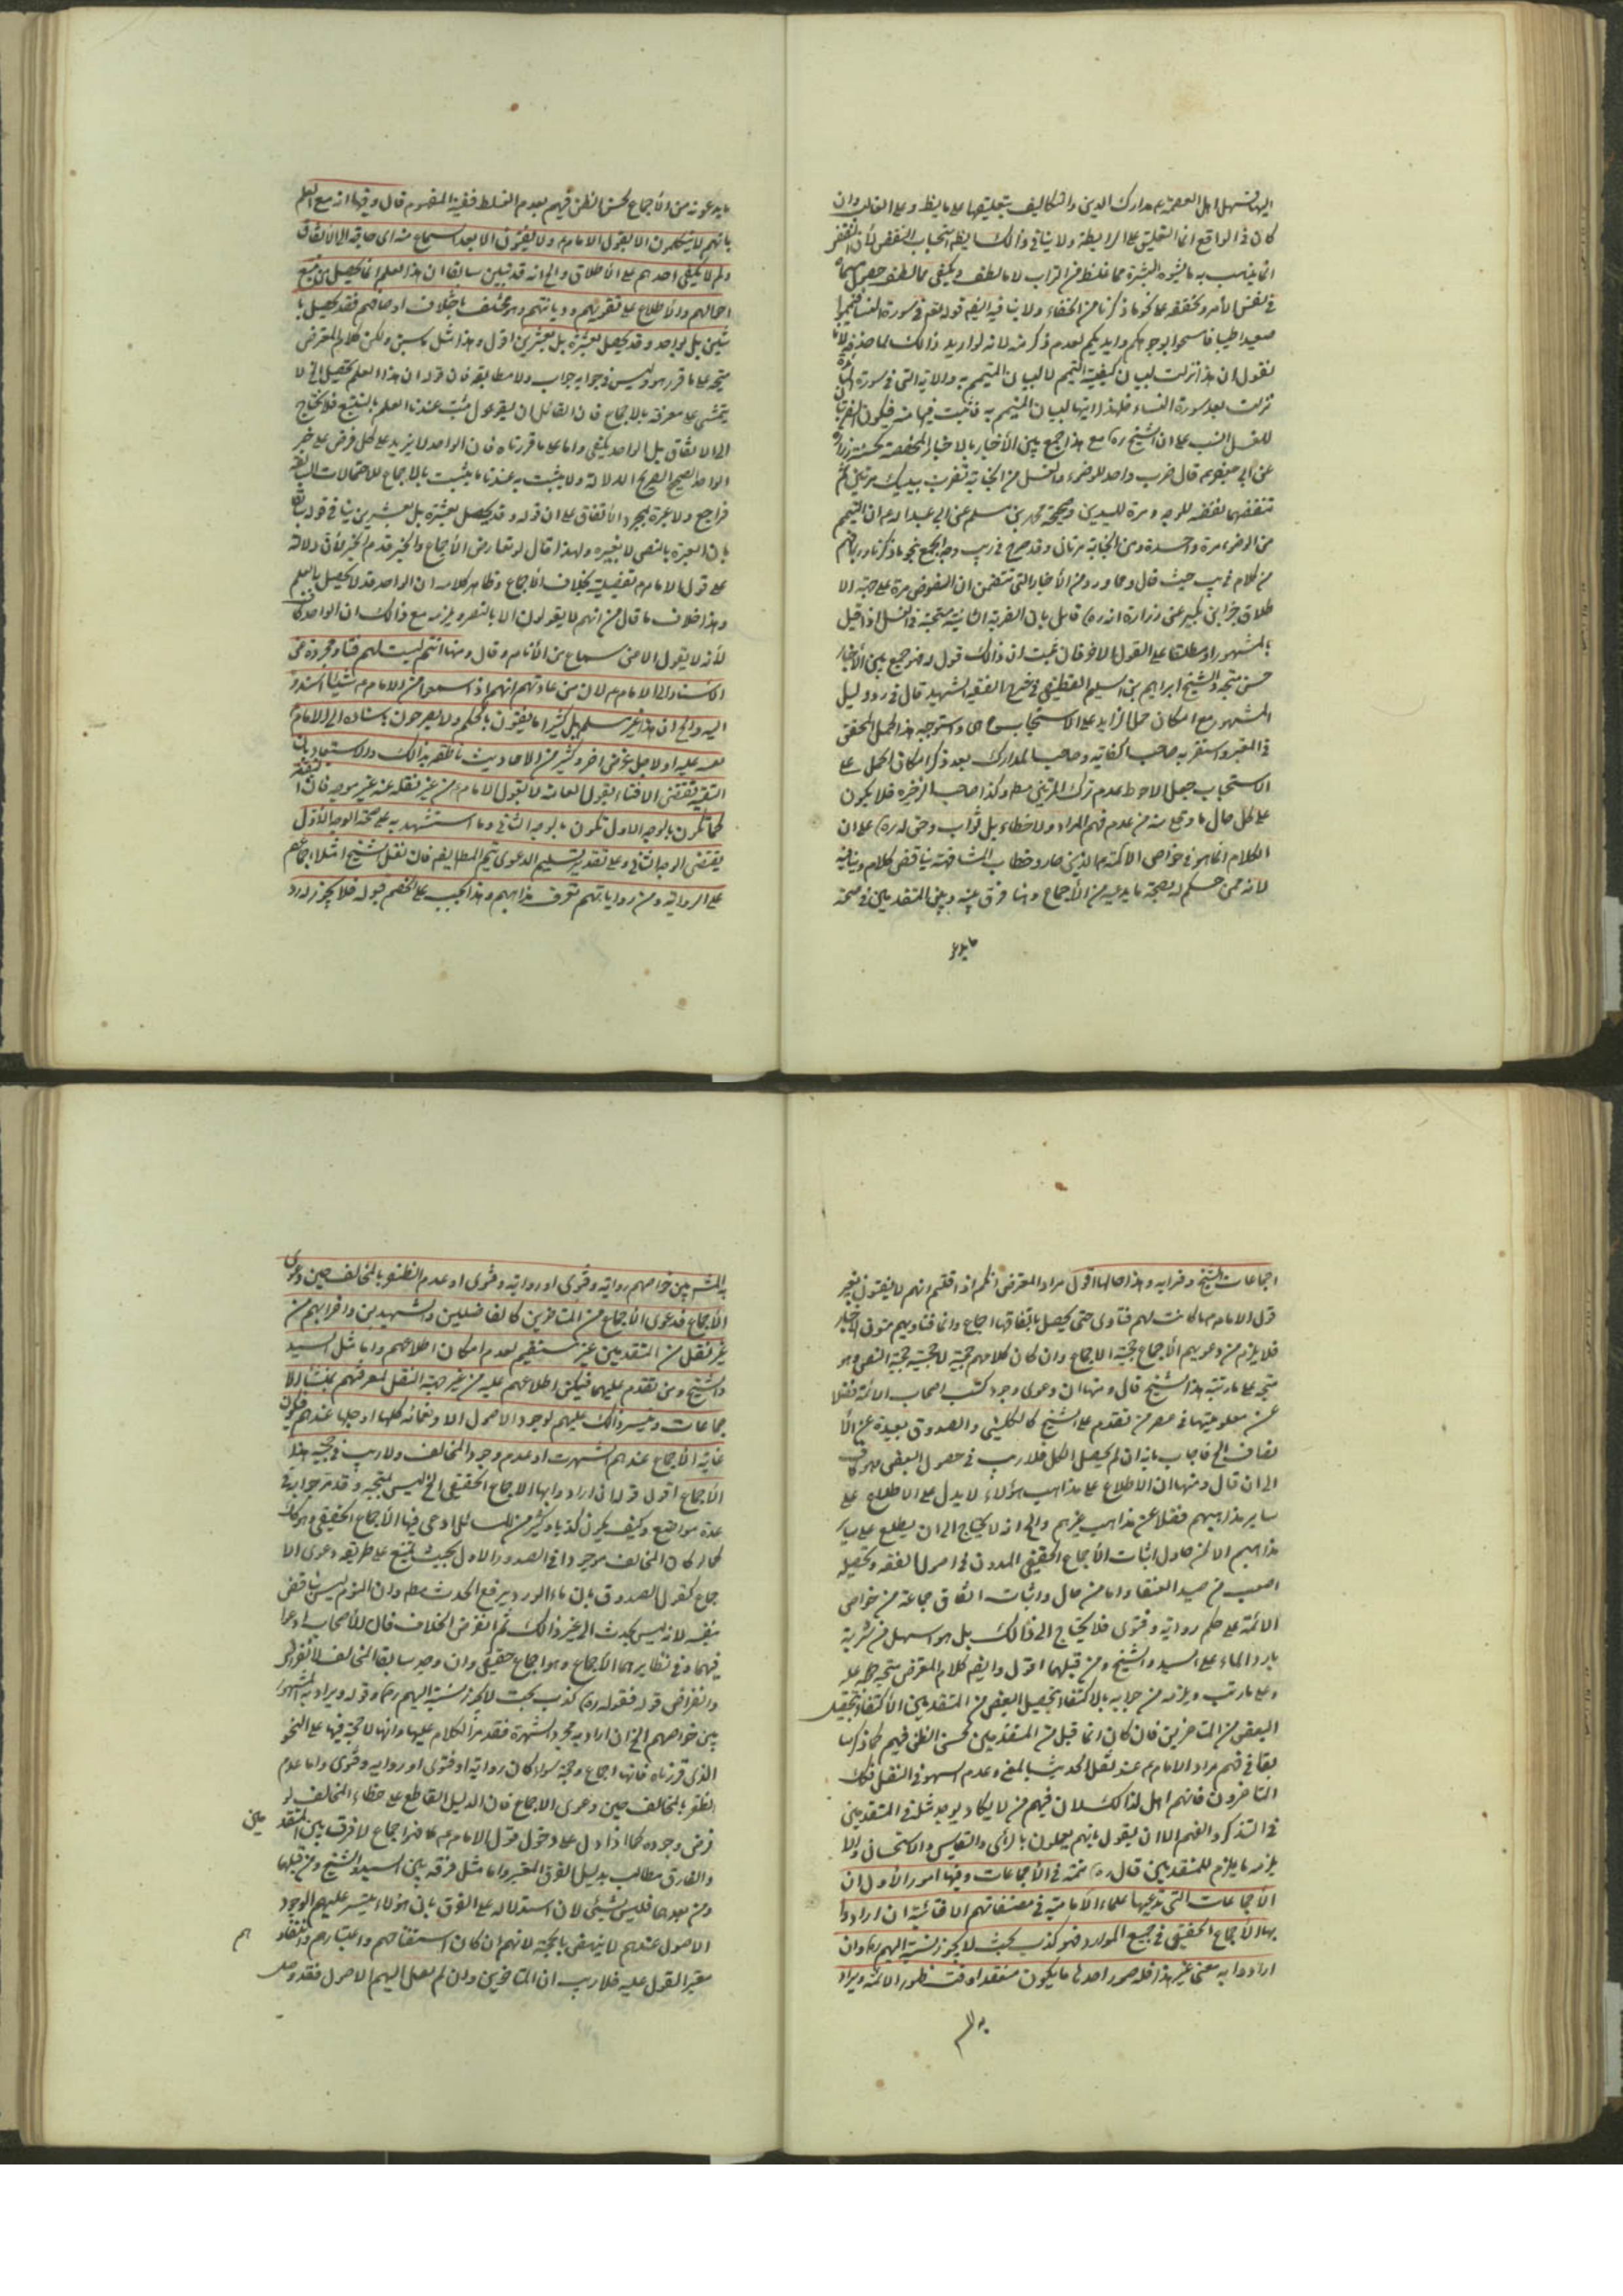 اليها تسهل اهل العصمة مدارك الدين والتكاليف بتعليقها على ما يظ وعلى الغالب وان
كان في الواقع انما التعليق على الرابطة ولا ينافي ذالك استحباب النفض لأن النفض
انما يذهب به ما يشوه البشرة مما غلظ من التراب لا ما لطف ويكفي ما لطف
في نفس الأمر وتحققه على نحو ما ذكرنا من الخفاء ولا ينافيه قوله تع في سورة النساء فتيمموا
صعيدا طيبا فامسحوا بوجوهكم وايديكم لعدم ذكر منه لانه لو اريد ذالك لما حذفه لانا
نقول ان هذا نزلت لبيان كيفية التيمم لا لبيان المتيمم به والاية التي في سورة المائدة
نزلت بعد سورة النساء فلهذا لبيان المتيمم به
للغسل انسب على ان الشيخ ره مع هذا جمع بين الأخبار بالاخبار المخصصة كحسنة زرارة
عن ابي جعفر قال ضرب واحد للوضوء والغسل من الجنابة تضرب بيديك مرتين ثم
تنفضهما نفضة للوجه ومرة لليدين وصحيحة محمد بن مسلم عن ابي عبد الله ان التيمم
من الوضوء مرة واحدة ومن الجنابة مرتان وقد صرح في يب وجه الجمع بنحو ما ذكرنا
من كلام في يب حيث قال وما ورد من الأخبار التي تتضمن ان المفروض مرة على جهة الا
طلاق زرارة انه قابل بان الضربة الثانية مستحبة في الغسل اذا قيل
بالمشهور او مطلقا على القول الاخر فان ثبت ان ذالك قول فهو جمع بين الأخبار
حسن متجه والشيخ ابراهيم بن سليم القطيفي في شرح الفقيه الشهيد قال في رد دليل
المشهور مع امكان حمل الزايد على الاستحباب واستوجه هذا الحمل المحقق
في المعتبر واستقر به صاحب الكفاية وصاحب المدارك بعد ذكر امكان الحمل على
الاستحباب جعل الاحوط عدم ترك المرتين مط وكذا صاحب الذخيرة فلا يكون
على كل حال ما وقع منه من عدم فهم المراد ولا خطاء بل ثواب على ان
الكلام انما هو في خواص الائمة الذين صار وخطاب المشافهة يناقض كلامه وينافيه
لانه ممن حكم له بصحة ما يدعيه من الأجماع وانما فرق بينه وبين المتقدمين في صحة
ما يدعو
ما يدعونه من الأجماع لحسن الظن فيهم بعدم الغلط ففيه المفهوم قال وفيها انه مع العلم
بأنهم لا يتكلمون الا بقول الامام ولا يفتون الا بعد سماع منه اي حاجة الى الاتفاق
ولم لا يكفي احدهم على الاطلاق والجواب انه قد تبين سابقا ان هذا العلم انما يحصل من تتبع
احوالهم والاطلاع على تقويهم وديانتهم وهو مختلف باختلاف اوصافهم فقد يحصل با
ثنين بل بواحد وقد يحصل بعشرة بل بعشرين اقول وهذا مثل ما سبق ولكن كلام المعترض
متجه على ما قرر هو وليس في جوابه جواب ولا مطابقة فان قوله ان هذا العلم يحصل الخ لا
يتمشى على معرفة بالاجماع فان القائل ان يقول يثبت عندنا العلم بالتتبع فلا نحتاج
الى الاتفاق بل الواحد يكفي واما على ما قررناه فان الواحد لا يزيد على كل فرض على خبر
الواحد الصحيح الصريح الدلالة ولا يثبت به عندنا ما يثبت بالاجماع للاحتمالات السابقة
فراجع ولا عبرة بمجرد الأتفاق على ان قوله وقد يحصل بعشرة بل بعشرين ينافي قوله
بان العبرة بالنص لا بغيره ولهذا قال لو تعارض الأجماع والخبر قدم الخبر لأن دلالة
على قول الامام تفصيلية بخلاف الأجماع وظاهر كلامه ان الواحد قد لا يحصل به العلم
وهذا خلاف ما قال من انهم لا يقولون الا بالنص ويلزمه مع ذالك ان الواحد كاف
لأنه لا يقول الا من سماع من الأنام وقال ومنها انتم ليست لهم فتاوى مجردة عن
الاسناد الى الامام لان من عادتهم انهم اذا سمعوا من الامام شيئا اسندوه
اليه والجواب ان هذا غير مسلم بل كثيرا ما يفتون بالحكم ولا يصرحون باسناده الى الامام
عليه اولا لاجل غرض اخر وكثير من الاحاديث ناطقة بذالك والاستبعاد بان
التقية تقتضي الافتاء بقول العامة لا بقول الامام من غير نقله عنه غير موجه فان التقية
كما تكون بالوجه الاول تكون بالوجه الثاني وما استشهد به على صحة الوجه الأول
يقتضي الوجه الثاني وعلى تقدير تسليم الدعوى يتم المطا ايضا فان نقل الشيخ مثلا اجماعهم
على الرواية ومن رواياتهم تعرف مذاهبهم وهذا يجب على الخصم قبوله فلا يجوز له رد
اجماعات الشيخ وضرابه وهذا حالها اقول مراد المعترض انكم اذا قلتم انهم لا يفتون بغير
قول الامام ما كانت لهم فتاوى حتى يحصل باتفاقها اجماع وانما فتاويهم متون الاخبار
فلا يلزم من دعويهم الأجماع حجية الاجماع وان كان كلامهم حجة لا لحجية النص وهو
متجه على ما رتبه هذا الشيخ قال ومنها ان دعوى وجود كتب اصحاب الائمة فضلا
عن معلوميتها في عصر من تقدم على الشيخ كالكليني والصدوق بعيدة عن الا
نصاف الخ فاجاب بانه ان لم يحصل الكل فلا ريب في حصول البعض وهو كاف
الى ان قال ومنها ان الاطلاع على مذاهب هؤلاء لا يدل على الاطلاع على
ساير مذاهبهم فضلا عن مذاهب غيرهم والجواب انه لا يحتاج الى ان يطلع على ساير
مذاهبهم الا لمن حاول اثبات الأجماع الحقيقي المدون في اصول الفقه وتحصيله
اصعب من صيد العنقا واما من حاول اثبات اتفاق جماعة من خواص
الائمة على حكم رواية وفتوى فلا يحتاج الى ذالك بل هو اسهل من شربة
بارد الماء على السيد والشيخ ومن قبلهما اقول وايضا كلام المعترض متجه
وعلى ما رتب ويلزمه من جوابه بالاكتفاء بتحصيل البعض من المتقدمين الأكتفاء بتحصيل
البعض من المتاخرين فان كان انما قبل من المتقدمين لحسن الظن فيهم كما ذكر سا
بقا في فهم مراد الامام عند نقل الحديث بالمعنى وعدم السهو في النقل فكذلك
المتاخرون فانهم اهل لذالك لان فيهم من لا يكاد يوجد مثله في المتقدمين
في التذكر والفهم الا ان يقول بانهم يعملون بالرأي والقياس والاستحسان والا
يلزمه ما يلزم للمتقدمين قال ره تتمة في الأجماعات وفيها امور الأول ان
الأجماعات التي تدعيها علماء الأمامية في مصنفاتهم الافتائية ان ارادوا
بها الأجماع الحقيقي في جميع الموارد فهو كذب بحت لا يجوز نسبة اليهم ره وان
ارادوا به معنى غير هذا فله صور احدها ما يكون منعقدا وقت ظهور الائمة ويراد
به الم
به المشهور بين خواصهم رواية وفتوى او رواية وفتوى او عدم الظفر بالمخالف حين دعوى
الأجماع فدعوى الأجماع من المتاخرين كالفاضلين والشهيدين واضرابهم من
غير نقل من المتقدمين غير مستقيم لعدم امكان اطلاعهم واما مثل السيد
والشيخ ومن تقدم عليهما فيمكن اطلاعهم عليه من غير جهة النقل لمعرفتهم بمنشأ الا
جماعات وتيسر ذالك عليهم لوجود الاصول الاربعمائة كلها او جلها عندهم فتكون
غاية الأجماع عندهم الشهرة او عدم وجود المخالف ولا ريب في حجية هذا
الأجماع اقول قوله ان ارادوا بها الاجماع الحقيقي الخ ليس بمتجه وقد مر جوابه في
عدة مواضع وكيف يكون كذبا وكثير من المسائل ادعى فيها الأجماع الحقيقي وهو كذلك
كما لو كان المخالف موجودا في الصدر الاول بحيث يمتنع على طريقه دعوى الا
جماع كقول الصدوق بان ماء الورد يرفع الحدث مط وان النوم ليس بناقض
بنفسه لانه ليس بحدث الى غير ذالك ثم انقرض الخلاف فان الأصحاب ادعوا
فيهما وفي نظايرهما الأجماع وهو اجماع حقيقي وان وجد سابقا المخالف لأنقراضه
وانقراض قوله فقوله ره كذب بحت لا يجوز نسبة اليهم ره وقوله ويراد به المشهور
بين خواصهم الخ ان اراد به مجرد الشهرة فقد مر الكلام عليها وانها لا حجة فيها على النحو
الذي قررناه فانها اجماع وحجة سواء كان رواية او فتوى او رواية وفتوى واما عدم
الظفر بالمخالف حين دعوى الاجماع فان الدليل القاطع على خطاء المخالف لو
فرض وجوده كما اذا دل على دخول قول الامام كاف اجماع لا فرق بين المتقدمين
والفارق مطالب بدليل الفرق المعتبر واما مثل فرقه بين السيد والشيخ ومن قبلهما
ومن بعدهما فليس بشيئ لان استدلاله على الفرق بان هؤلاء تيسر عليهم لوجود
الاصول عندهم لا ينهض بالحجة لانهم ان كان استفتاحهم واعتبارهم وانتقاد هم
معتبر القول عليه فلا ريب ان المتاخرين وان لم يصل اليهم الاصول فقد وصل